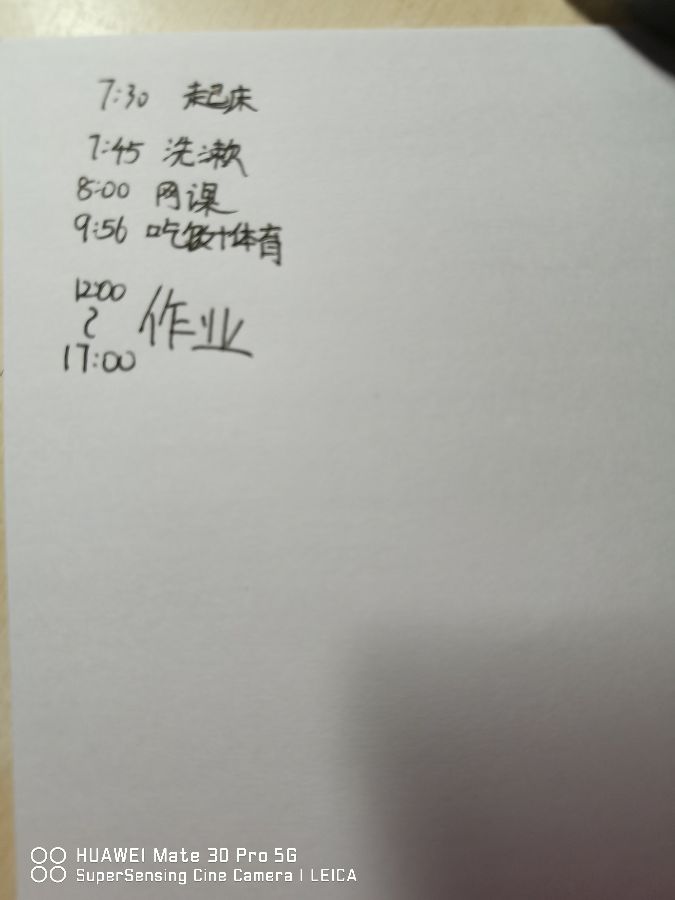 7:30 起床
7:45 洗漱
8:00 网课
9:56 吃饭+体育
12:00
~
17:00
作业
HUAWEI Mate 30 Pro 5G
SuperSensing Cine Camera | LEICA